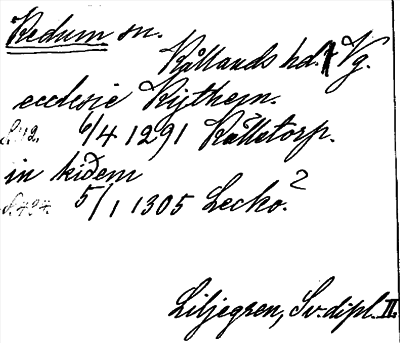 Redum sn.
Kållands hd. Vg.
ecclesie Rythem.
S. 112. 6/4 1291 Kålletorp.
in kiðem
S. 434. 5/1 1305 Lecko?
Liljegren, Sv. dipl. II.